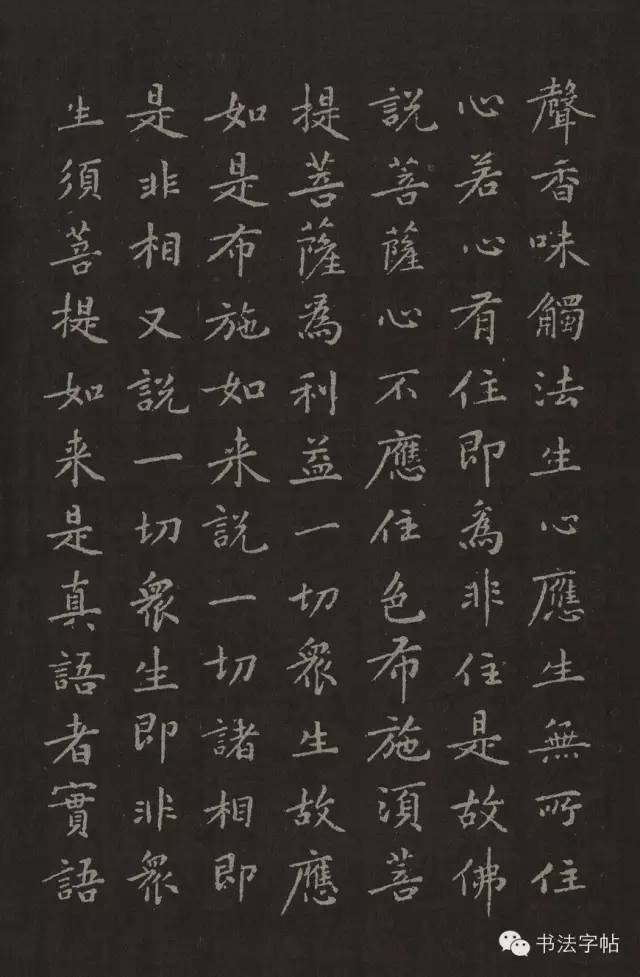 聲香味觸法生心應生無所住
心若心有住即為非住是故佛
說菩薩心不應住色布施須菩
提菩薩為利益一切眾生故應
如是布施如来說一切諸相即
是非相又說一切眾生即非眾
生須菩提如来是真語者實語
书法字帖